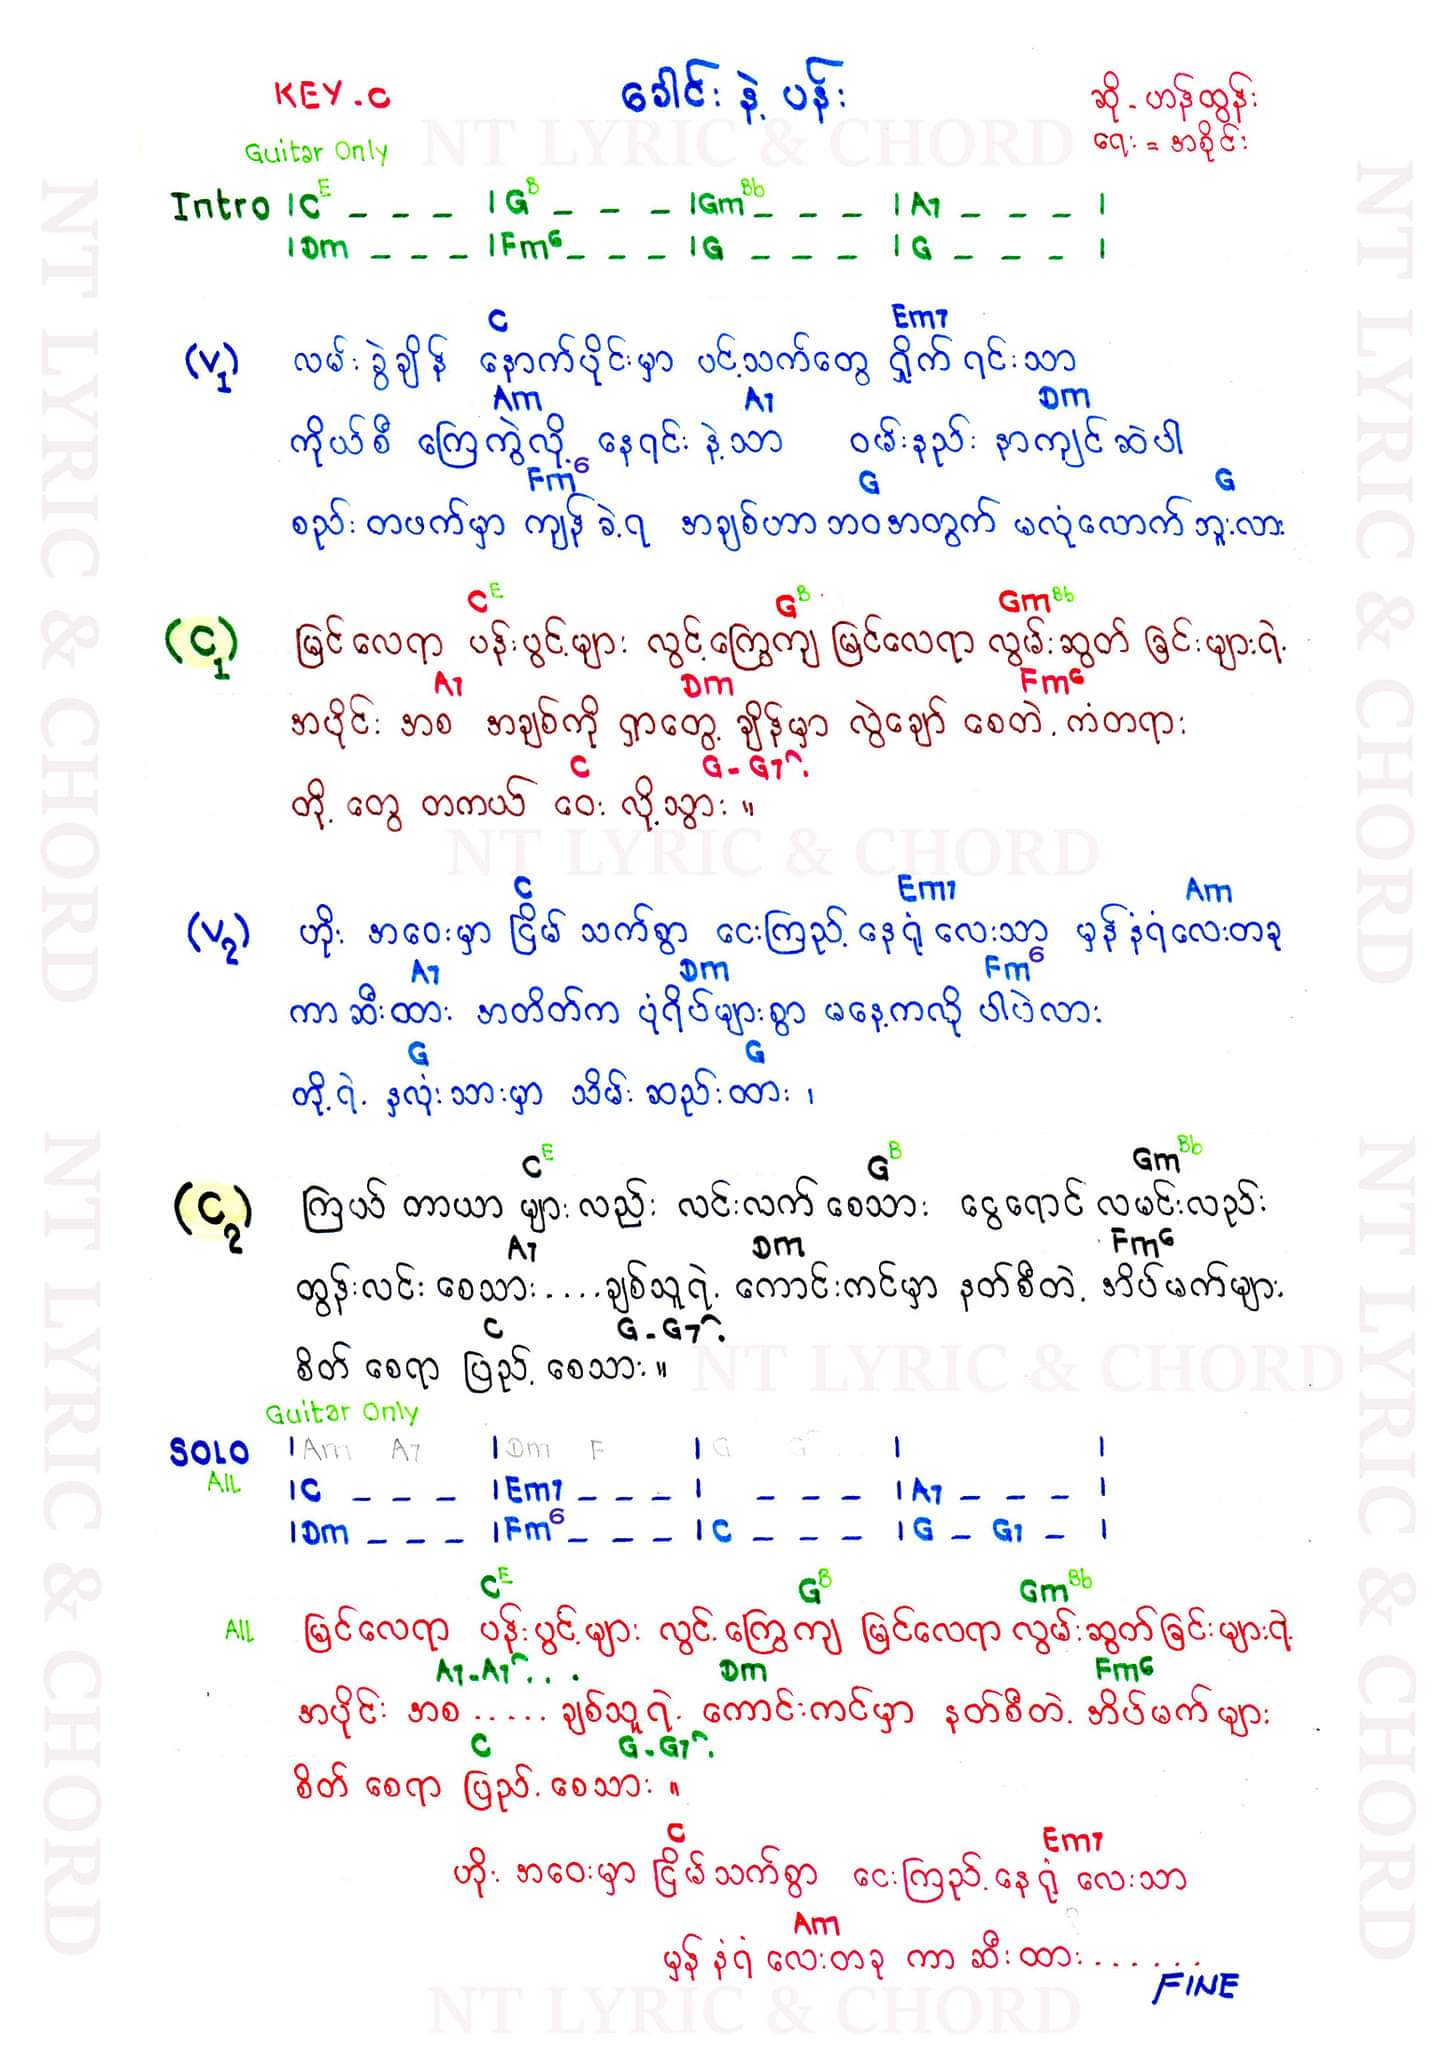 KEY.C ခေါင်း နဲ့ ပန်း ဆို - ဟန်ထွန်း
Guitar Only NT LYRIC & CHORD ရေး = အစိုင်း
Intro |C E _ _ _ |G B _ _ _ |Gm Bb _ _ _ |A7 _ _ _ |
|Dm _ _ _ |Fm6 _ _ _ |G _ _ _ |G _ _ _ |
C Em7
(V1) လမ်းခွဲချိန် နောက်ပိုင်းမှာ ပင့်သက်တွေ ရှိုက်ရင်းသာ
Am A7 Dm
ကိုယ်စီ ကြေကွဲလို့ နေရင်းနဲ့သာ ဝမ်းနည်း နာကျင်ဆဲပါ
Fm6 G G
စည်းတဖက်မှာ ကျန်ခဲ့ရ အချစ်ဟာဘဝအတွက် မလုံလောက်ဘူးလား
C E G B Gm Bb
(C1) မြင်လေရာ ပန်းပွင့်များ လွင့်ကြွေကျ မြင်လေရာ လွမ်းဆွတ်ခြင်းများရဲ့
A7 Dm Fm6
အပိုင်း အစ အချစ်ကို ရှာတွေ့ ချိန်မှာ လွဲချော် စေတဲ့ ကံတရား
C G - G7
တို့ တွေ တကယ် ဝေး လို့သွား ။
NT LYRIC & CHORD
C Em7 Am
(V2) ဟိုး အဝေးမှာ ငြိမ်သက်စွာ ငေးကြည့်နေရုံလေးသာ မှန်နံရံလေးတခု
A7 Dm Fm6
ကာဆီးထား အတိတ်က ပုံရိပ်များစွာ မနေ့ကလို ပါပဲလား
G G
တို့ရဲ့ နှလုံးသားမှာ သိမ်းဆည်းထား ၊
C E G B Gm Bb
(C2) ကြယ်တာယာ များလည်း လင်းလက်စေသား ငွေရောင် လမင်းလည်း
A7 Dm Fm6
ထွန်းလင်းစေသား....ချစ်သူရဲ့ ကောင်းကင်မှာ နတ်စီတဲ့ အိပ်မက်များ
C G - G7
စိတ်စေရာ ပြည့်စေသား ။
NT LYRIC & CHORD
Guitar Only
SOLO |Am A7 |Dm F |G G | |
All |C _ _ _ |Em7 _ _ _ | _ _ _ |A7 _ _ _ |
|Dm _ _ _ |Fm6 _ _ _ |C _ _ _ |G _ G7 _ |
C E G B Gm Bb
All မြင်လေရာ ပန်းပွင့်များ လွင့်ကြွေကျ မြင်လေရာ လွမ်းဆွတ်ခြင်းများရဲ့
A7 - A7 . . . Dm Fm6
အပိုင်း အစ ..... ချစ်သူရဲ့ ကောင်းကင်မှာ နတ်စီတဲ့ အိပ်မက်များ
C G - G7
စိတ်စေရာ ပြည့်စေသား ။
C Em7
ဟိုး အဝေးမှာ ငြိမ်သက်စွာ ငေးကြည့်နေရုံ လေးသာ
Am
မှန်နံရံလေးတခု ကာဆီးထား.......
FINE
NT LYRIC & CHORD
NT LYRIC & CHORD
NT LYRIC & CHORD
NT LYRIC & CHORD
NT LYRIC & CHORD